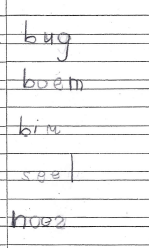 bug
boem
bim
seel
hoez